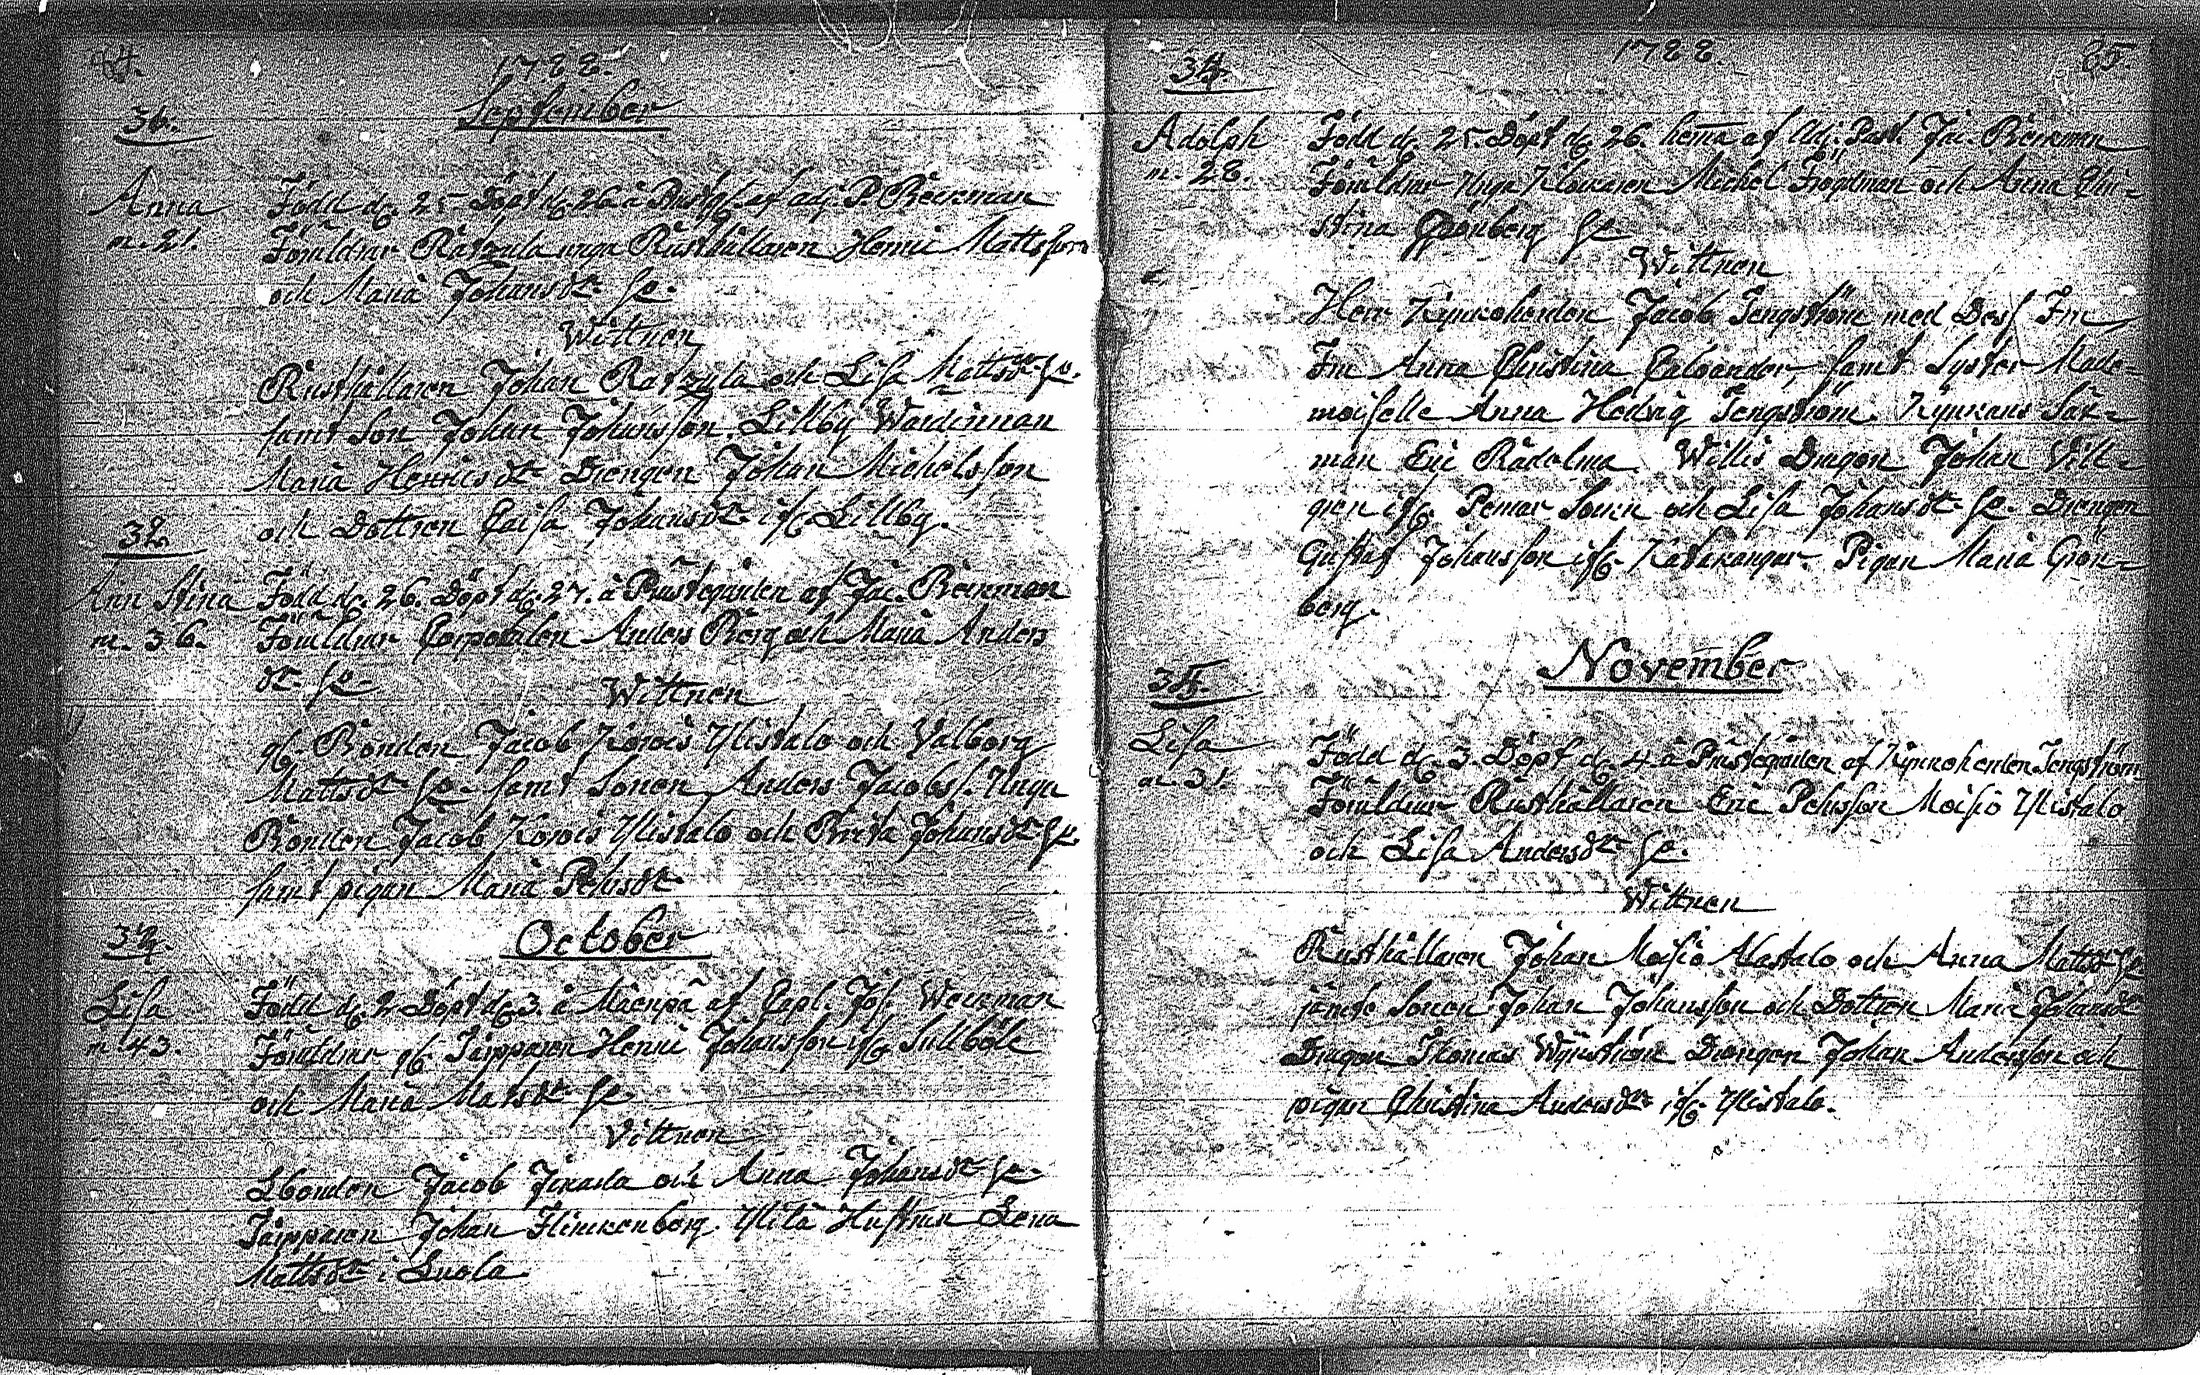 84.
1788.
September
31.
Anna
m. 21.
Född d. 25 Döpt d. 26 i Prstg. af adj. P. Beckman
Föräldrar Ratzula unga Rusthållaren Henric Mattsson
och Maria Johansdr. h:o
Wittnen
Rusthållaren Johan Ratzula och Lisa Mattsdr h:o
samt Son Johan Johansson. Lillby Wärdinnan
Maria Henricsdr Drengen Johan Michelsson
och Dottren Caisa Johansdr. ifr. Lillby.
32.
Ann Stina
m. 36.
Född d. 26. Döpt d. 27. i Prästegården af Jac. Beckman
Föräldrar Corporalen Anders Berg och Maria Anders
dr. h:o
Wittnen
gl. Bonden Jacob Korvis Ylistalo och Valborg
Mattsdr h:o samt Sonen Anders Jacobss. Unga
Bonden Jacob Korvis Ylistalo och Brita Johansdr h:o
samt pigan Maria Pehrsdr
October
33.
Lisa
m. 43.
Född d. 2 Döpt d. 3. i Mäenpä af Capl. Jos. Weckman
Föräldrar gl. Torpparen Henric Johansson ifr Sillböle
och Maria Matsdr h:o
Vittnen
Lbonden Jacob och Anna Johansdr h:o
Torpparen Johan Flinckenberg. Ylitå Hustrun Lena
Mattsdr i Luola
1788.
85.
34.
Adolph
m. 28.
Född d. 25. Döpt d. 26. hema af Adj. Past. Jac. Beckman
Föräldrar Unga Klockaren Michel Frogdman och Anna Chri-
stina Grönberg h:o
Wittnen
Herr Kyrkoherden Jacob Tengström med Dess Fru
Fru Anna Christina Caloander, samt Syster Made-
moiselle Anna Hedvig Tengström. Kyrkans Sex-
man Eric Rådelma Willis Dragon Johan Vill-
gren ifr. Pemar Socken och Lisa Johansdr. h:o Drengen
Gustaf Johansson ifr. Katukangar. Pigan Maria Grön-
berg.
November
35.
Lisa
m. 31.
Född d. 3. Döpt d. 4. i Prästegården af Kyrkoherden Tengström
Föräldrar Rusthållaren Eric Pehrsson Moisio Ylistalo
och Lisa Andersdr h:o
Wittnen
Rusthållaren Johan Moisio Alastalo och Anna Mattsdr h:o
jemte Sonen Johan Johansson och Dottren Maria Johansdr
Dragon Thomas Wynström Drengen Johan Andersson och
pigan Christina Andersdr ifr. Ylistalo.